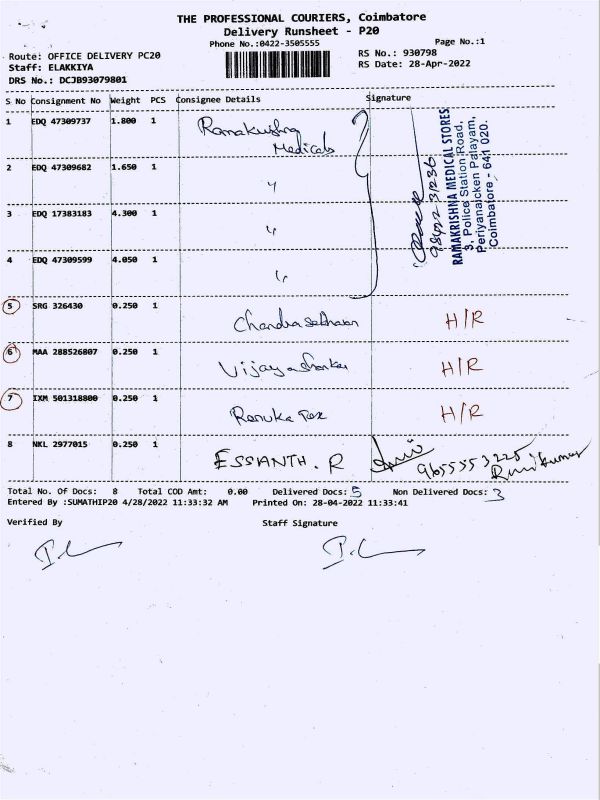 THE PROFESSIONAL COURIERS, Coimbatore
Delivery Runsheet - P20
Phone No.:0422-3505555
Page No.:1
Route: OFFICE DELIVERY PC20
RS No.: 930798
Staff: ELAKKIYA
RS Date: 28-Apr-2022
DRS No.: DCJB93079801
S No Consignment No Weight PCS Consignee Details Signature
1 EDQ 47309737 1.800 1 Ramakrishna Medicals
2 EDQ 47309682 1.650 1 "
3 EDQ 17383183 4.300 1 "
4 EDQ 47309599 4.050 1 "
98422 31236
RAMAKRISHNA MEDICAL STORES
3, Police Station Road,
Periyanaicken Palayam,
Coimbatore - 641 020.
5 SRG 326430 0.250 1 Chandrasekharan H/R
6 MAA 288526807 0.250 1 Vijayashankar H/R
7 IXM 501318800 0.250 1 Renuka Tex H/R
8 NKL 2977015 0.250 1 ESSIANTH. R 9655553225
Total No. Of Docs: 8 Total COD Amt: 0.00 Delivered Docs: 5 Non Delivered Docs: 3
Entered By :SUMATHIP20 4/28/2022 11:33:32 AM Printed On: 28-04-2022 11:33:41
Verified By Staff Signature